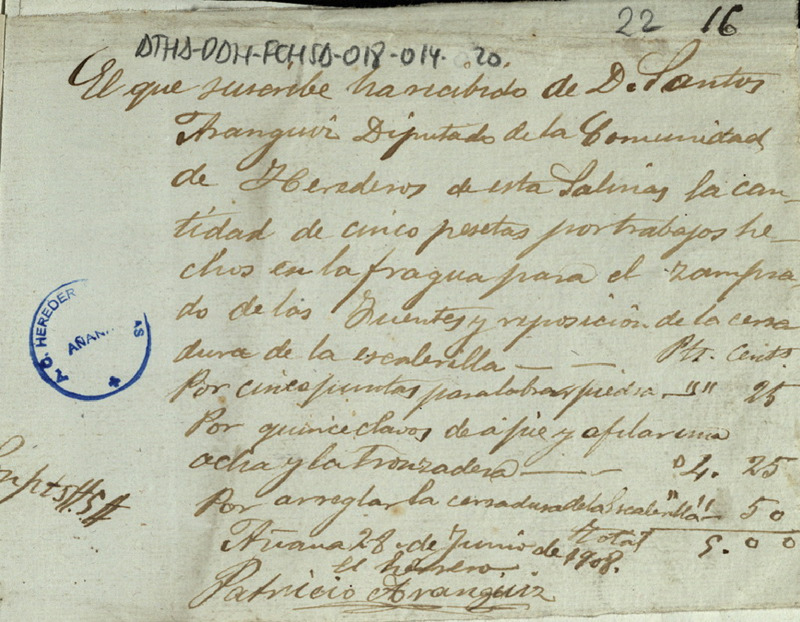 22 16
DTHD-DDH-PCHSD-018-014-020.
El que suscribe ha recibido de D. Santos
Aranguiz Diputado de la Comunidad
de Herederos de esta Salinas la can-
tidad de cinco pesetas por trabajos he-
chos en la fragua para el zampea-
do de las Fuentes y reposición de la cerra
dura de la escalerilla — — Pts. Cents.
Por cinco puntas para labrar piedra — " " 25
Por quince clavos de a pie y afilar una
acha y la tronzadera — — " 4. 25
Por arreglar la cerradura de la Escalerilla " " 50
Total 5.00
Añana 28 de Junio de 1908.
el herrero
Patricio Aranguiz
HEREDER
AÑAN
AS